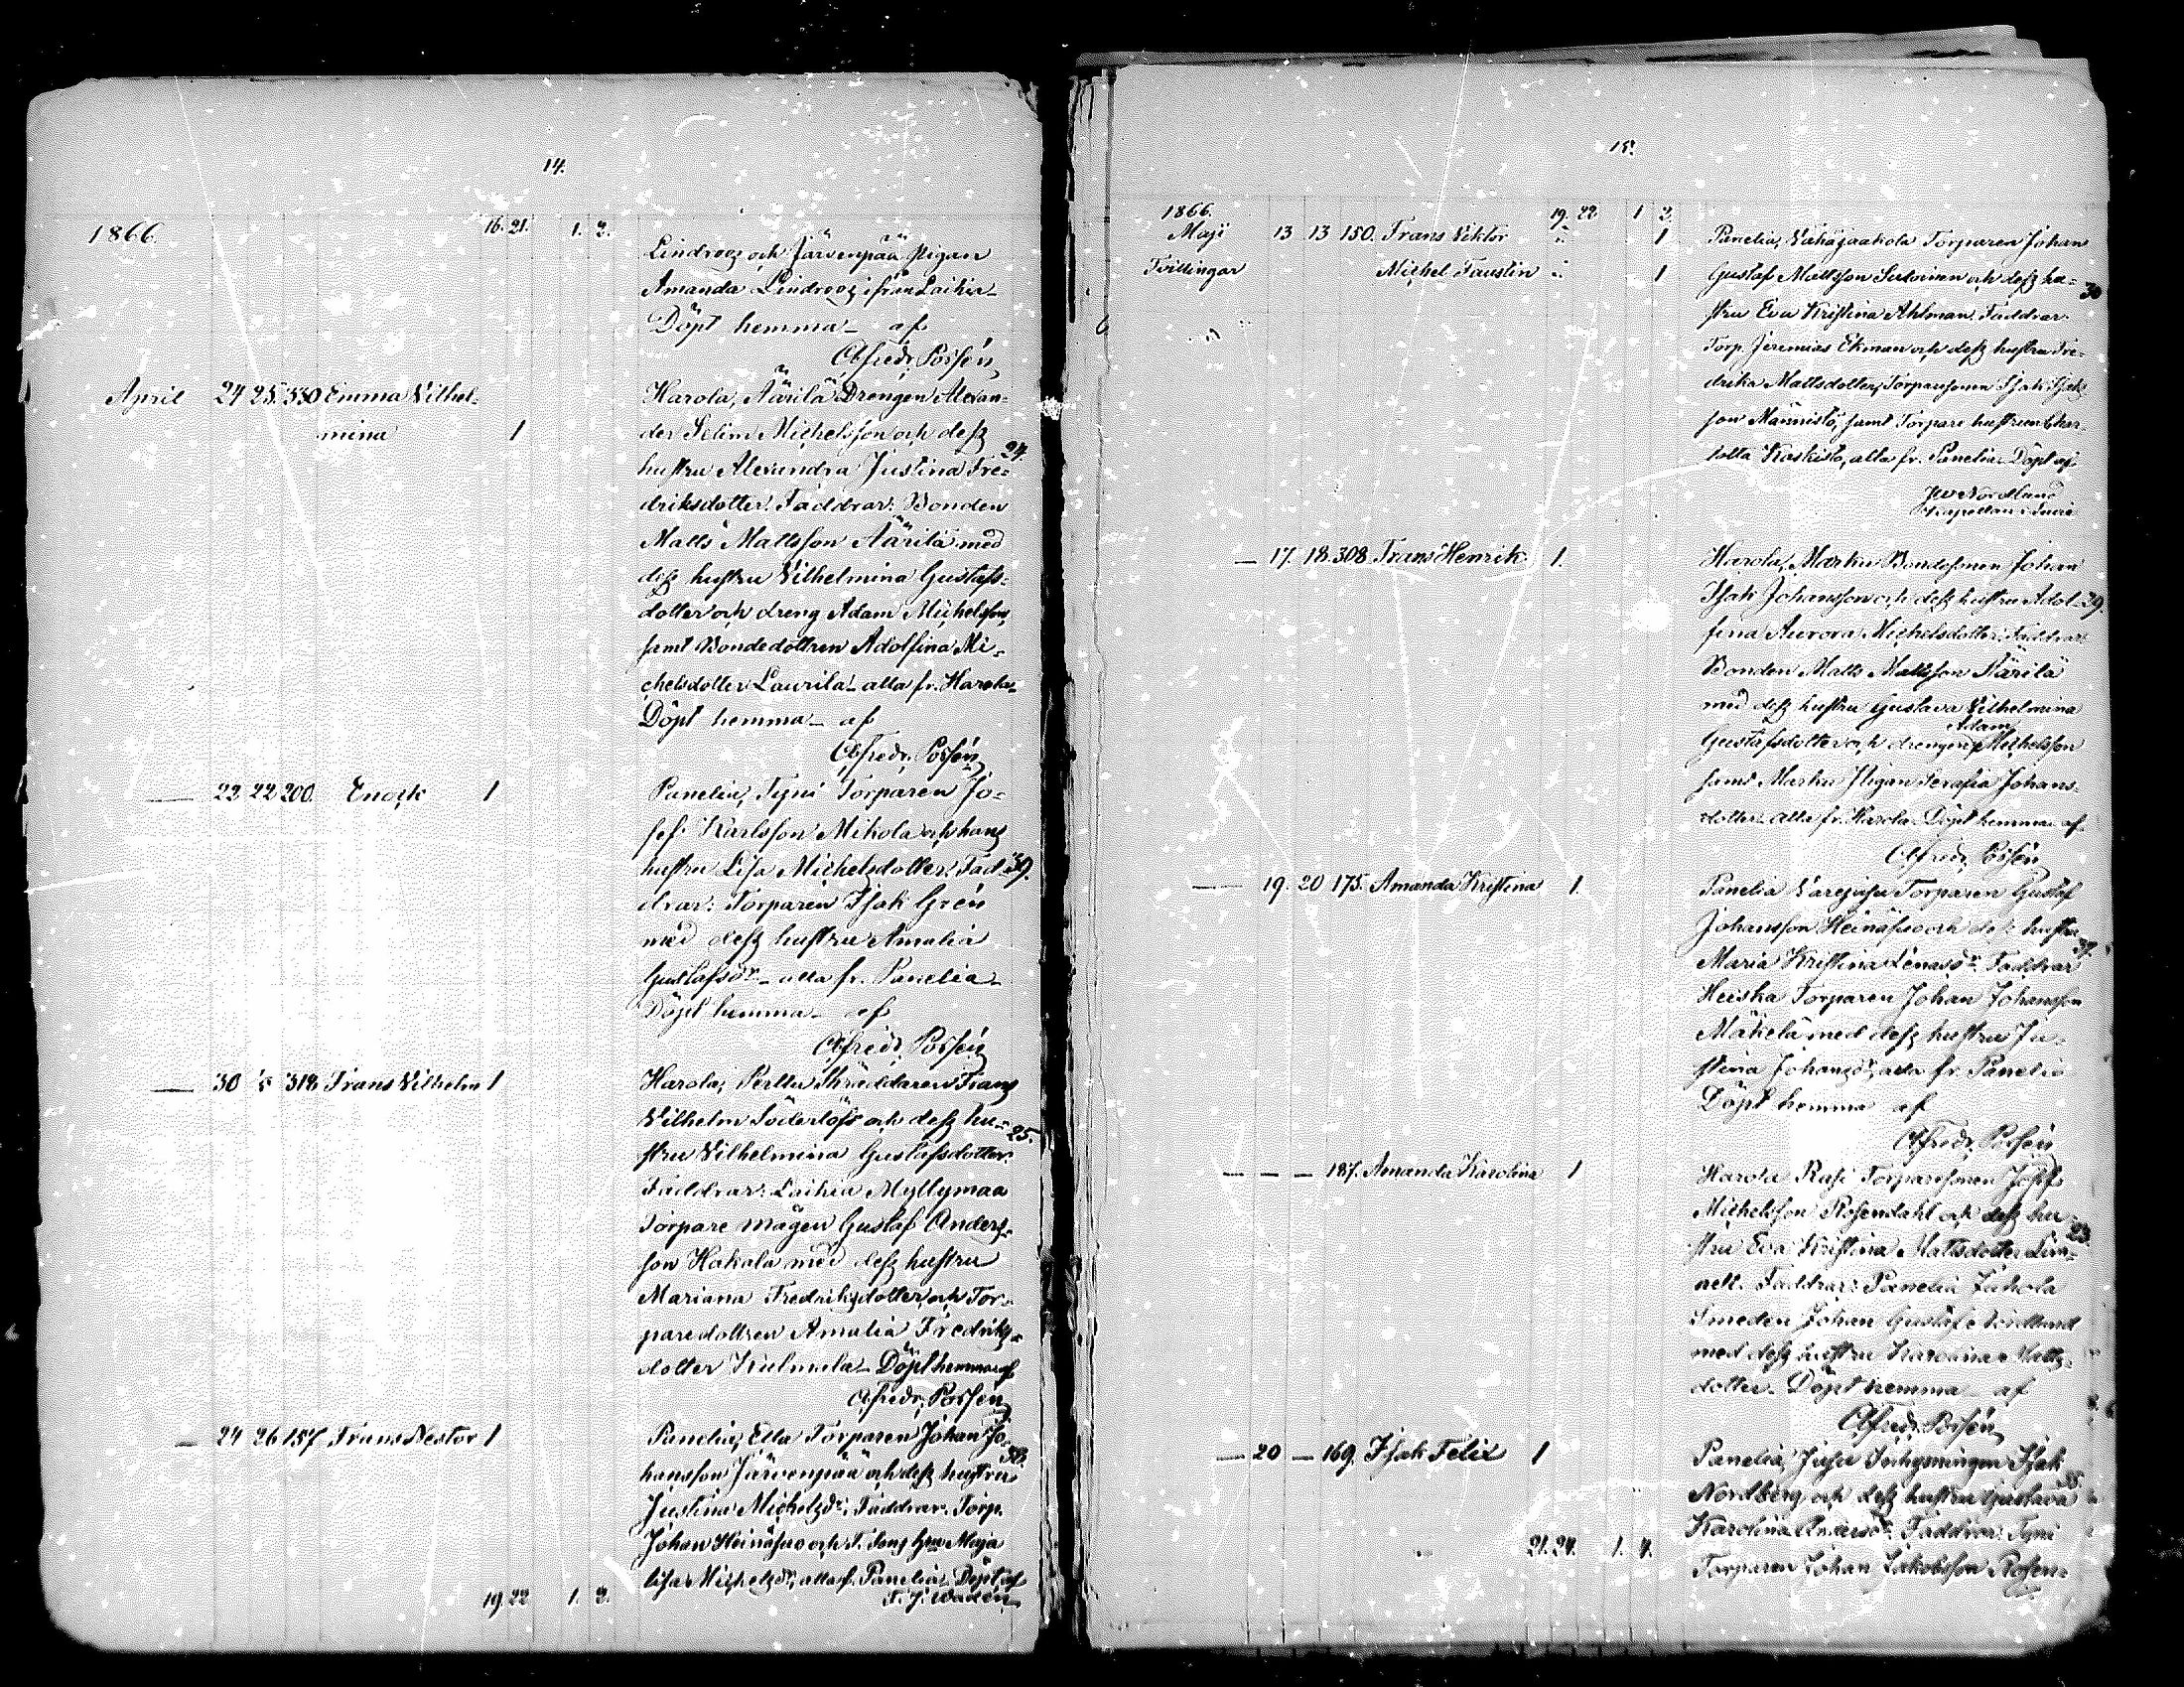 14.
1866. 16. 21. 1. 2.
Lindroos och Järvenpää Pigan
Amanda Lindroos ifrån Laihia_
Döpt hemma_ af
Alfredr. Possén
April 24 25. 330 Emma Vilhel- Harola, Äärilä Drengen Alexan-
mina 1 der Selim Michelsson och dess
hustru Alexandra Justina Fre- 24.
driksdotter. Faddrar: Bonden
Matts Mattsson Äärilä med
dess hustru Vilhelmina Gustafs-
dotter och dreng Adam Michelsson,
samt Bondedottren Adolfina Mi-
chelsdotter Laurila_ alla fr. Harola_
Döpt hemma_ af
Alfredr. Possén
— 22 22 200. Enock 1 Panelia, Tyni Torparen Jo-
sef Karlsson Mikola och hans
hustru Lisa Michelsdotter. Fad- 39.
drar: Torparen Isak Grén
med dess hustru Amalia
Gustafsdr_ alla fr. Panelia_
Döpt hemma_ af
Alfredr. Possén
— 30 318 Frans Vilhelm 1 Harola, Perttu Skräddaren Frans
Vilhelm Söderlöf och dess hu- 25.
stru Vilhelmina Gustafsdotter.
Faddrar: Laihia Myllymaa
Torpare mågen Gustaf Anders-
son Hakala med dess hustru
Mariana Fredriksdotter och Tor-
paredottren Amalia Fredriks-
dotter Kulmala_ Döpt hemma af
Alfredr. Possén
— 24 26 157 Frans Nestor 1 Panelia, Ella Torparen Johan Jo-
hansson Järvenpää och dess hustru 38.
Justina Michelsdr. Faddrar. Torp.
Johan Heinäsuo och Maja
lisa Michelsdr, alla f. Panelia_ Döpt af
19. 22 1. 2. F. J. Wadén
15.
1866. 19. 22 1 2.
Maji 13 13 150. Frans Viktor 1 Panelia, Vähäjaakola Torparen Johan
Tvillingar Michel Faustin 1 Gustaf Mattsson Sutoinen och dess hu- 30
stru Eva Kristina Ahlman. Faddrar.
Torp. Jeremias Ekman och dess hustru Fre-
drika Mattsdotter, Torparesonen Isak Isaks-
son Männistö, samt Torpare hustrun Char-
lotta Kaskisto, alla fr. Panelia. Döpt af
Nordlund
Kapellan i
— 17. 18. 308. Frans Henrik 1. Harola, Marku Bondesonen Johan
Isak Johansson och dess hustru Adol- 29.
fina Aurora Michelsdotter. Faddrar
Bonden Matts Mattsson Äärilä
med dess hustru Gustava Vilhelmina
Adam
Gustafsdotter och drengen Michelsson
samt Marku Pigan Serafia Johans-
dotter_ alla fr. Harola. Döpt hemma af
Alfredr. Possén
— 19. 20 175. Amanda Kristina 1. Panelia Torparen Gustaf
Johansson Heinäsuo och dess hustru 37.
Maria Kristina Lénasdr. Faddrar
Heiska Torparen Johan Johansson
Mäkelä med dess hustru Ju-
stina Johansdr, alla fr. Panelia
Döpt hemma af
Alfredr. Possén
— — — 187. Amanda Karolina 1 Harola Rasi Torparesonen Josef
Michelsson Rosendahl och dess hu- 23.
stru Eva Kristina Mattsdotter Lin-
nell. Faddrar: Panelia Juhola
Smeden Johan Gustaf Nordlund
med dess hustru Karolina Matts-
dotter_ Döpt hemma_ af
Alfredr. Possén
— 20 — 169. Isak Felix 1 Panelia, Isak
Nordberg och dess hustru Gustava 35.
Karolina Andersdr. Faddrar. Tyni
21. 24. 1. 4. Torparen Johan Jakobsson Rosen-